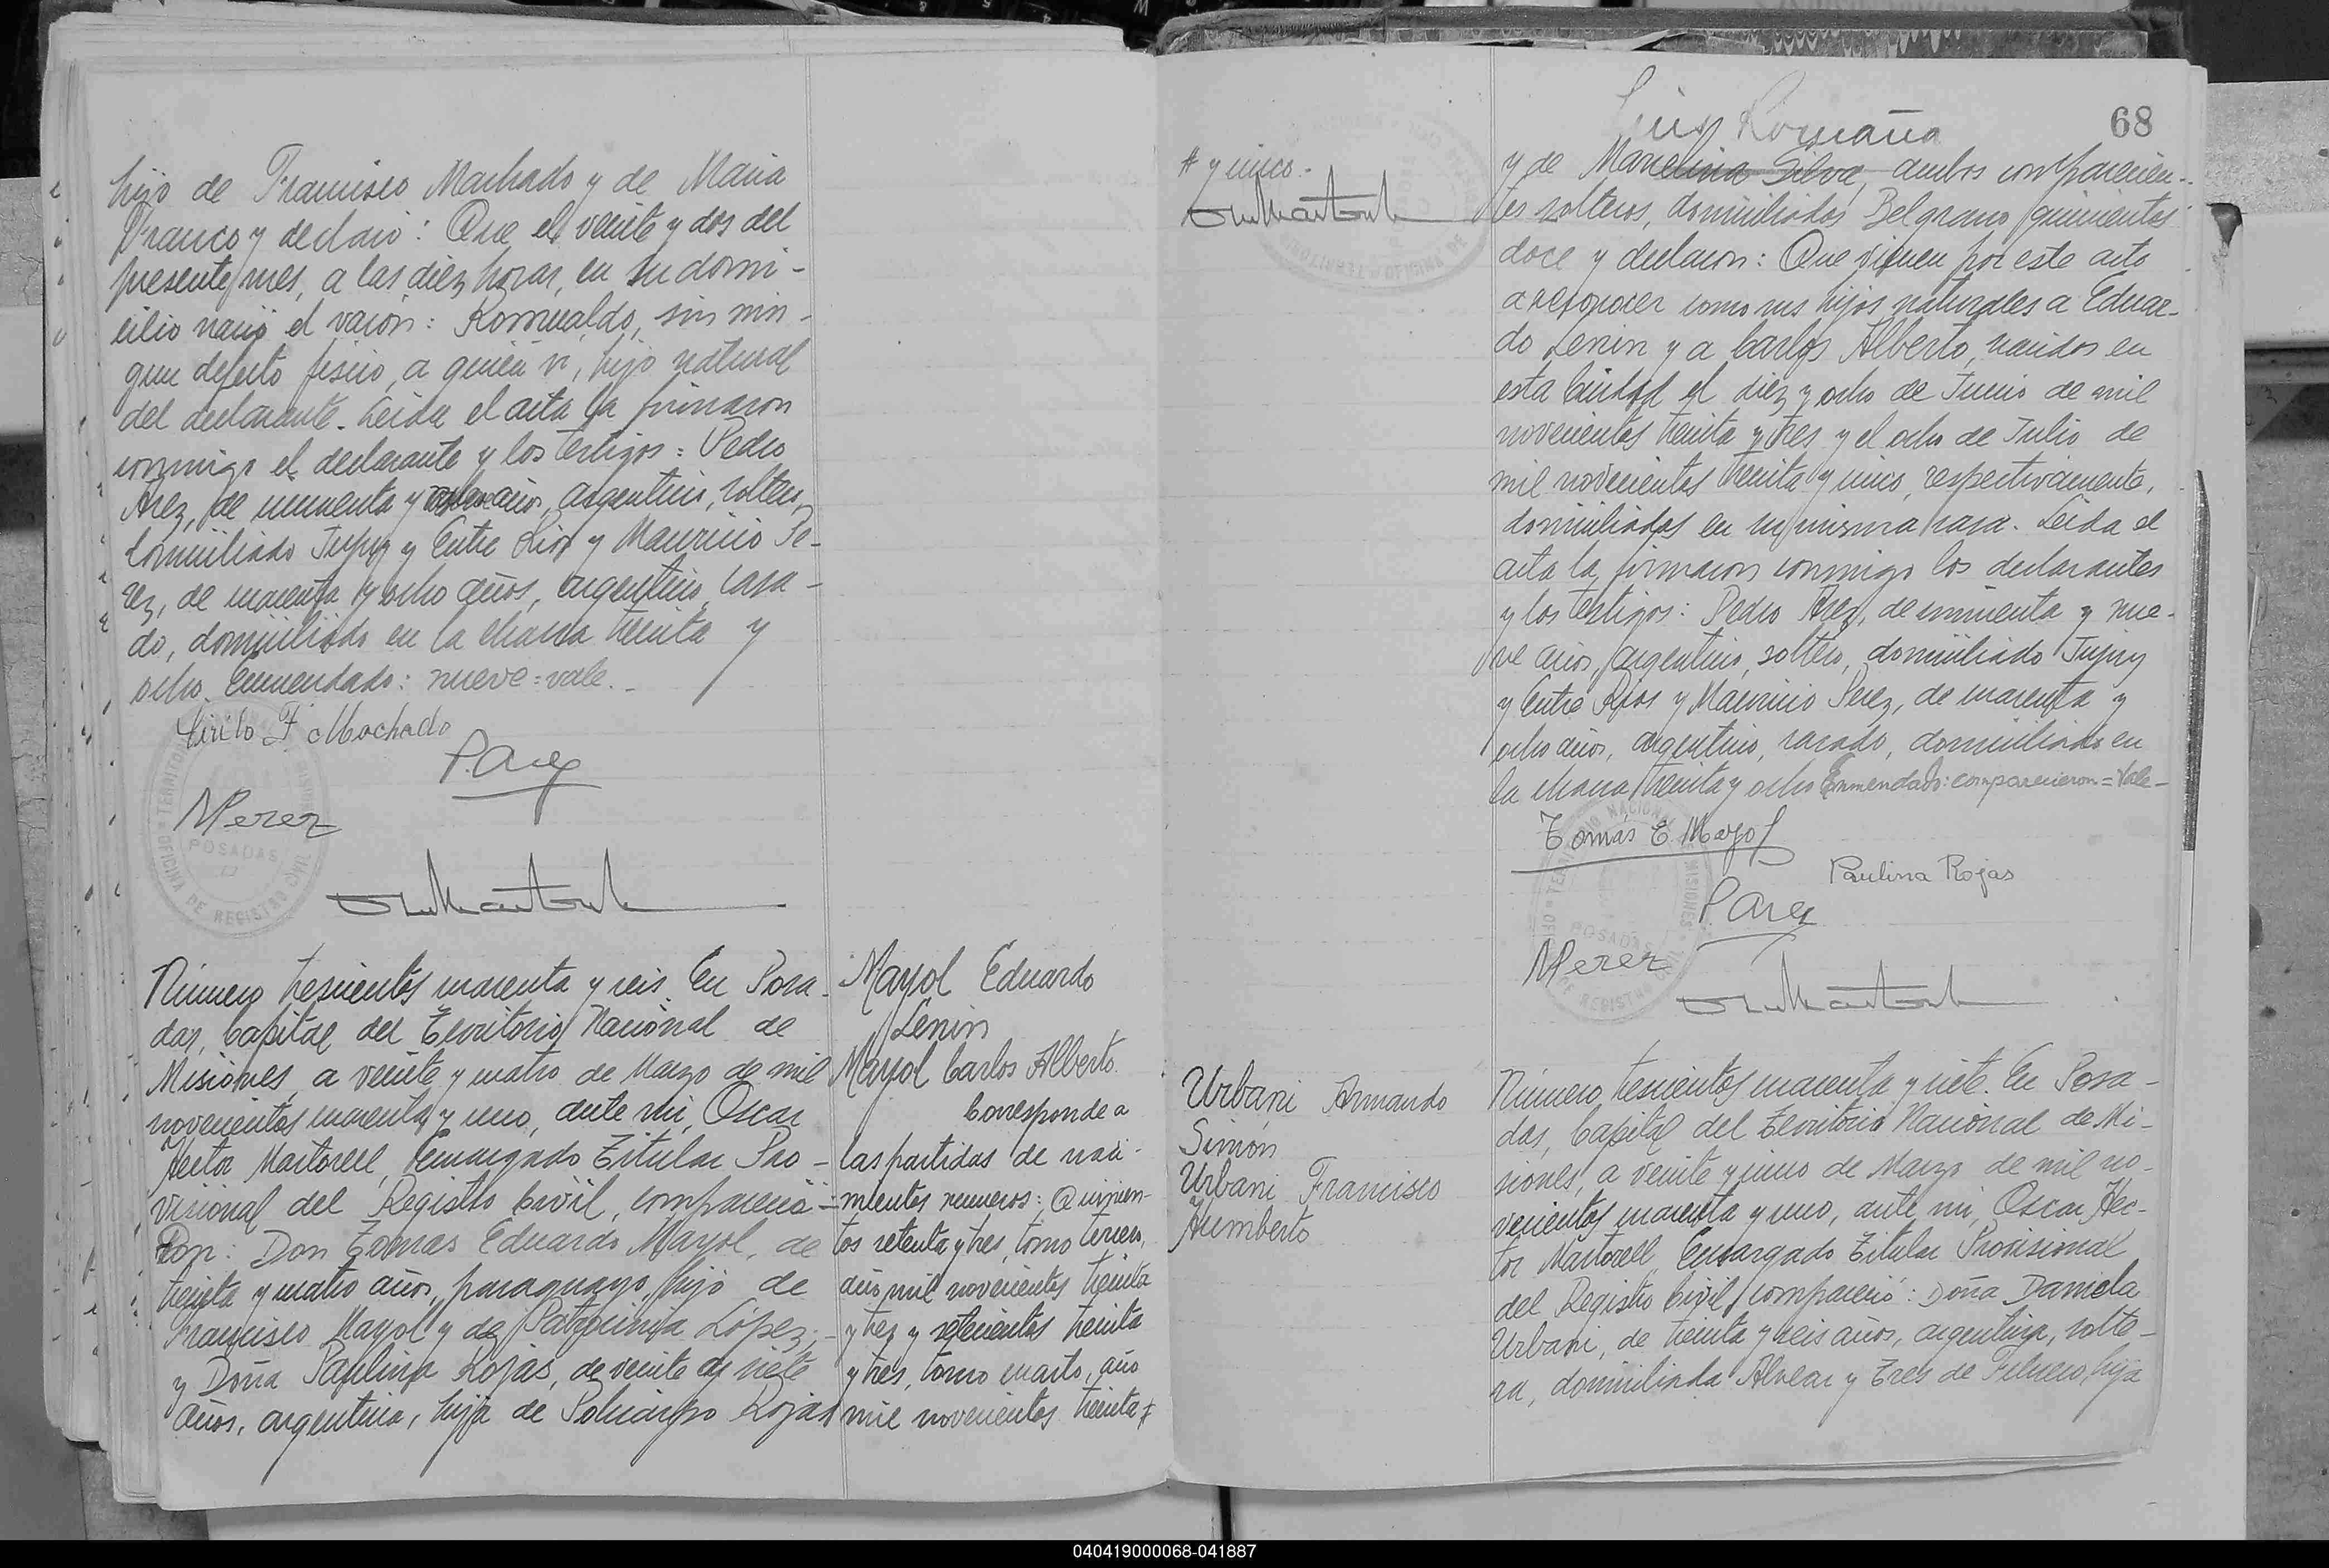 hijo de Francisco Machado y de Maria
Franco y declaró: Que el veinte y dos del
presente mes, a las diez horas, en su domi-
cilio nació el varón: Romualdo, sin nin-
gun defecto fisico, a quién vi, hijo natural
del declarante. Leida el acta la firmaron
conmigo el declarante y los testigos: Pedro
Arez, de cincuenta y nueve años, argentino, soltero,
domiciliado Jujuy y Entre Rios y Mauricio Pe-
rez, de cuarenta y ocho años, argentino, casa-
do, domiciliado en la chacra treinta y
ocho. Enmendado: nueve=vale.-
Cirilo F. Machado
P. Arez
MPerez
POSADAS
OFICINA DE REGISTRO CIVIL
Número trescientos cuarenta y seis. En Posa-
das, Capital del Territorio Nacional de
Misiones, a veinte y cuatro de Marzo de mil
novecientos cuarenta y uno, ante mi, Oscar
Hector Martorell, Encargado Titular Pro-
visional del Registro Civil, comparecie-
ron: Don Tomas Eduardo Mayol, de
treinta y cuatro años, paraguayo, hijo de
Francisco Mayol y de Patrocinia López;-
y Doña Paulina Rojas, de veinte y siete
años, argentina, hija de Policarpo Rojas
Mayol Eduardo
Lenin
Mayol Carlos Alberto.
Corresponde a
las partidas de naci-
mientos numeros: Quinien-
tos setenta y tres, tomo tercero,
año mil novecientos treinta
y tres y setecientos treinta
y tres, tomo cuarto, año
mil novecientos treinta #
# y cinco.-
68
y de Marcelina Silva, ambos comparecien-
tes solteros, domiciliados Belgrano quinientos
doce y declaron: Que vienen por este acto
a reconocer como sus hijos naturales a Eduar-
do Lenin y a Carlos Alberto, nacidos en
esta Ciudad el diez y ocho de Junio de mil
novecientos treinta y tres y el ocho de Julio de
mil novecientos treinta y cinco, respectivamente,
domiciliados en su misma casa. Leida el
acta la firmaron conmigo los declarantes
y los testigos: Pedro Arez, de cincuenta y nue-
ve años, argentino, soltero, domiciliado Jujuy
y Entre Rios y Mauricio Perez, de cuarenta y
ocho años, argentino, casado, domiciliado en
la chacra treinta y ocho Enmendado: comparecieron=Vale-
Tomás E. Mayol
Paulina Rojas
P Arez
MPerez
POSADAS
Urbani Armando
Simón
Urbani Francisco
Humberto
Número trescientos cuarenta y siete. En Posa-
das, Capital del Territorio Nacional de Mi-
siones, a veinte y cinco de Marzo de mil no-
vecientos cuarenta y uno, ante mi, Oscar Hec-
tor Martorell, Encargado Titular Provisional
del Registro Civil, compareció: Doña Daniela
Urbani, de treinta y seis años, argentina, solte-
ra, domiciliada Alvear y Tres de Febrero, hija
040419000068-041887